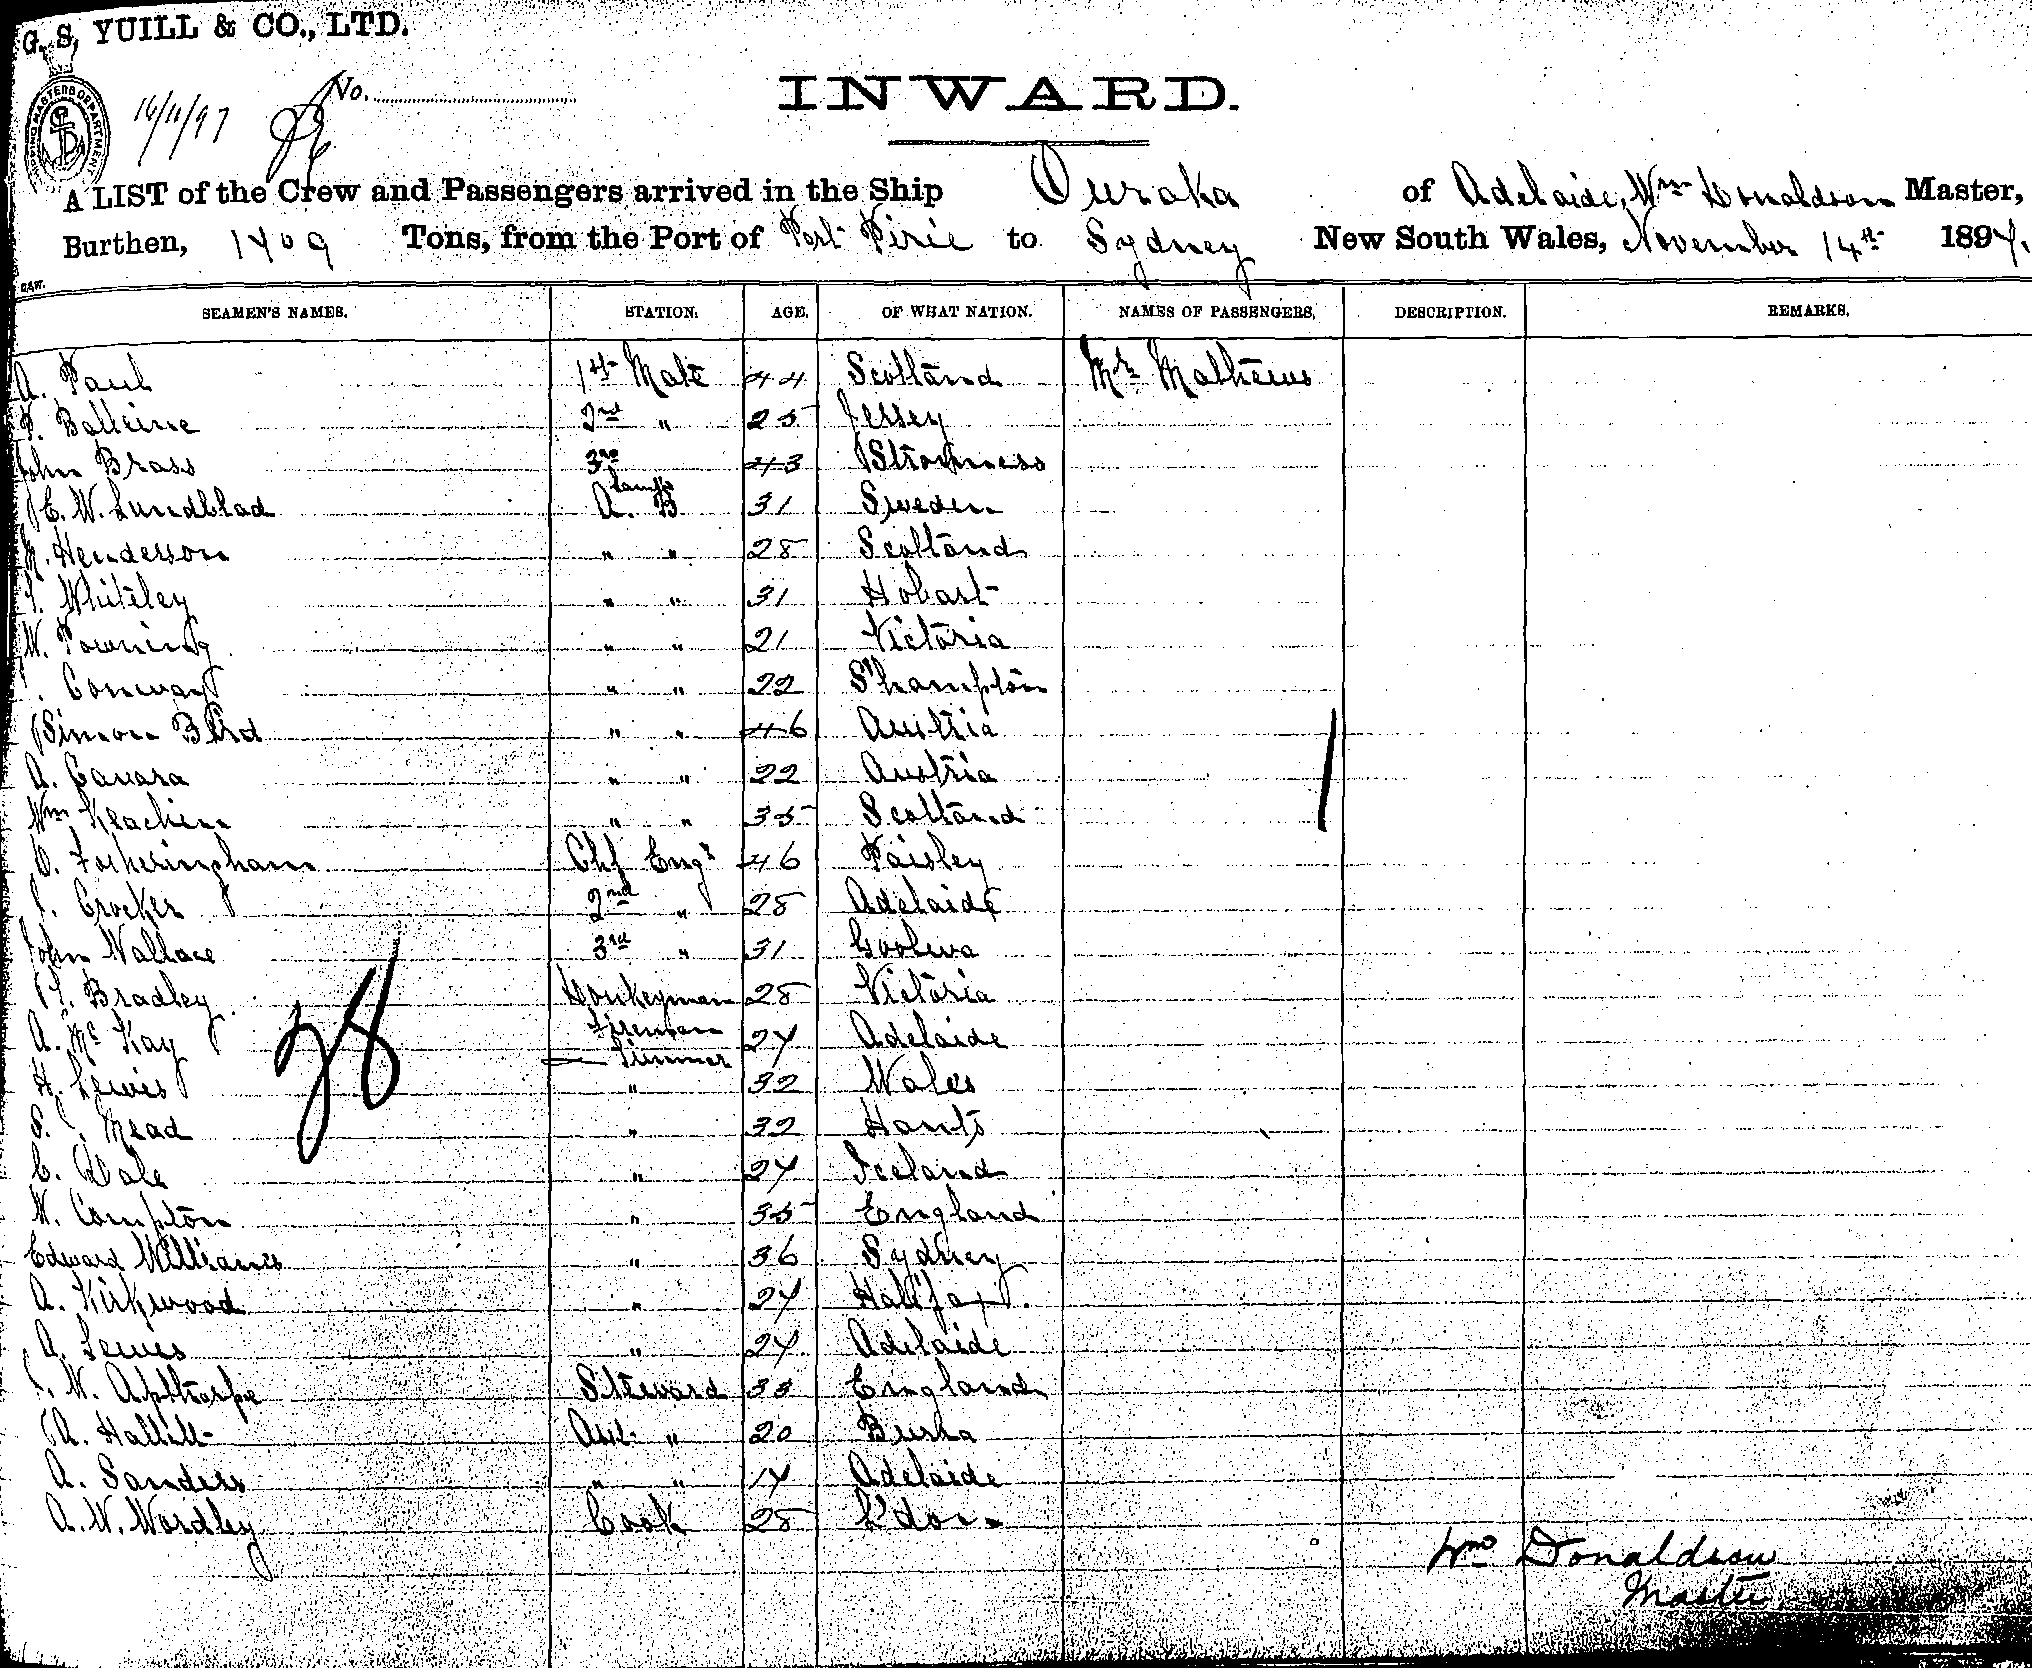 G. S. YUILL & CO., LTD.
16/11/97
No.
INWARD.
A LIST of the Crew and Passengers arrived in the Ship Ouraka of Adelaide, Wm Donaldson Master,
Burthen, 1409 Tons, from the Port of Port Pirie to Sydney New South Wales, November 14th 1897.
SEAMEN'S NAMES. STATION. AGE. OF WHAT NATION. NAMES OF PASSENGERS. DESCRIPTION. REMARKS.
A. Paul 1st Mate 44 Scotland Mr Mathews
Balleine 2nd " 25 Jersey
John Brass 3rd 43 Stromness
E. W. Lundblad Lamps A. B 31 Sweden
Henderson " " 28 Scotland
Whiteley " " 31 Hobart
W. Powning " " 21 Victoria
Conway " " 22 S'hampton
Simon Bird " " 46 Austria
A. Gavara " " 22 Austria
Wm Keachin " " 35 Scotland
Fotheringham Chf Engr 46 Paisley
Crocker 2nd " 28 Adelaide
John Wallace 3rd " 31 Goolwa
Bradley Donkeyman 28 Victoria
A. McKay Fireman 27 Adelaide
Trimmer
H. Lewis " 32 Wales
S. Mead " 32 Hants
C. Dale " 27 Iceland
W. Compton " 35 England
Edward Williams " 36 Sydney
A. Kirkwood " 27 Halifax.
A. Lewis " 27 Adelaide
W. Apthorpe Steward 33 England
A. Hallett Asst " 20 Burra
A. Sanders " " 17 Adelaide
A. W. Wordley Cook 28 L'don
28
Wm Donaldson
Master